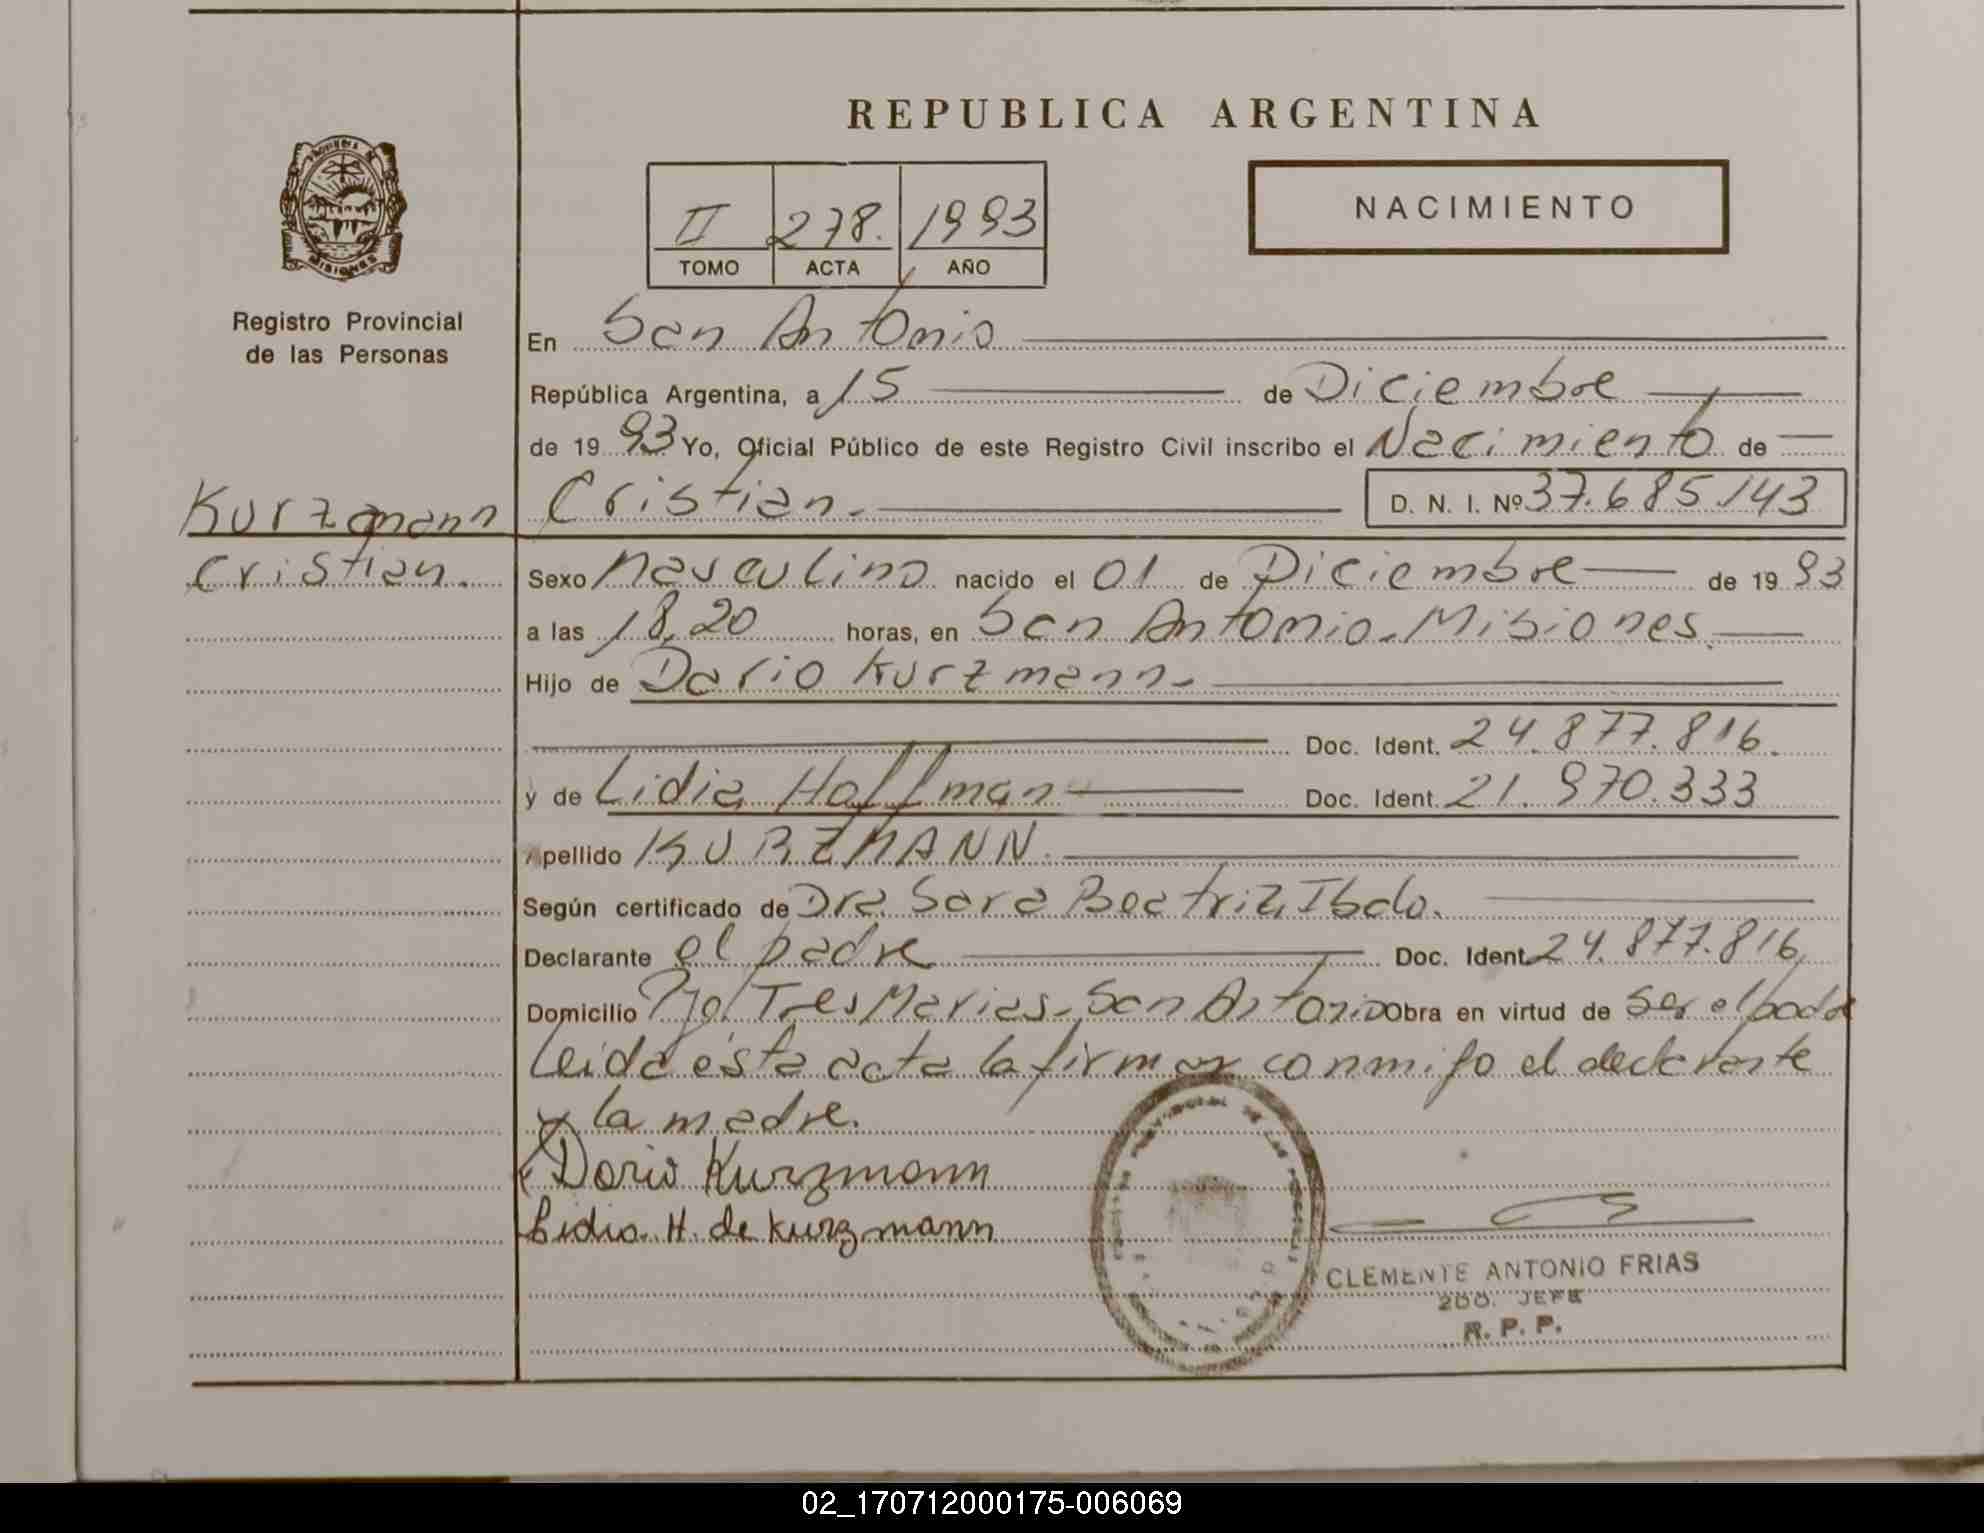 REPUBLICA ARGENTINA
PROVINCIA DE
MISIONES
Registro Provincial
de las Personas
II 278. 1993
TOMO ACTA AÑO
NACIMIENTO
En San Antonio
República Argentina, a 15 de Diciembre
de 19 93 Yo, Oficial Público de este Registro Civil inscribo el Nacimiento de
Kurzmann
Cristian.
Cristian. D. N. I. Nº 37.685.143
Sexo Masculino nacido el 01 de Diciembre de 19 93
a las 18,20 horas, en San Antonio. Misiones
Hijo de Dario Kurzmann.
Doc. Ident. 24.877.816.
y de Lidia Hoffman Doc. Ident. 21.970.333
Apellido KURZMANN.
Según certificado de Dra. Sara Beatriz
Declarante el padre Doc. Ident. 24.877.816
Domicilio Tres Marias. San Antonio Obra en virtud de ser el padre
Leida ésta acta la firman conmigo el declarante
y la madre.
Dario Kurzmann
Lidia H. de Kurzmann
CLEMENTE ANTONIO FRIAS
2DO. JEFE
R. P. P.
02_170712000175-006069